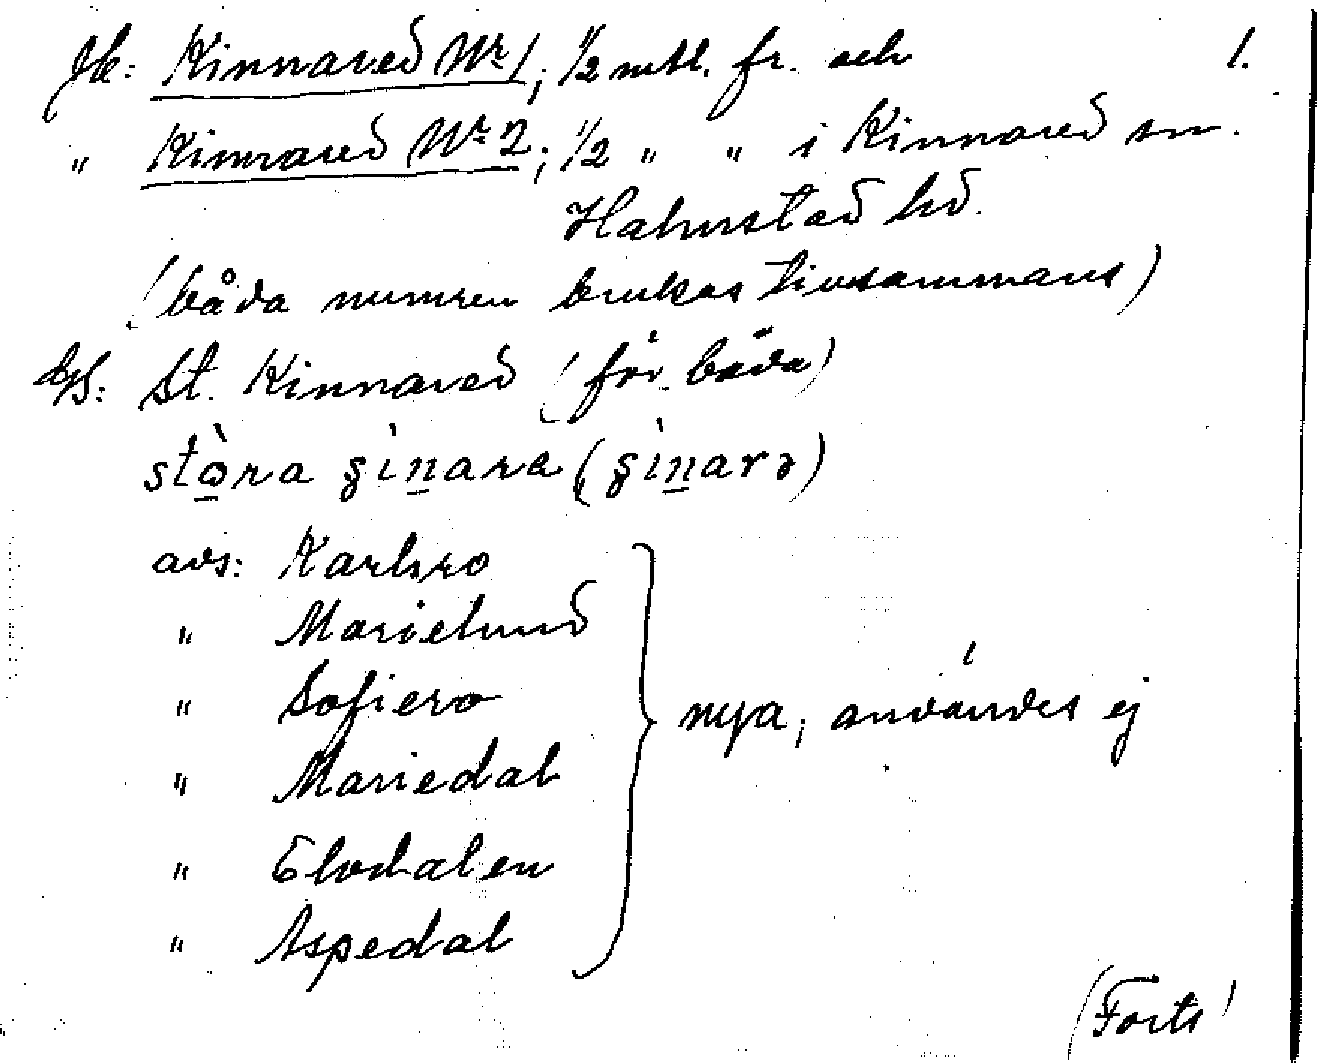 Jb: Kinnared Nr 1; 1/2 mtl. fr. och 1.
" Kinnared Nr 2; 1/2 " " i Kinnared sn.
Halmstad hd.
(båda numren brukas tillsammans)
Gs: St. Kinnared (för båda)
stò̠ra ʂìn̠ara (ʂìn̠arə)
avs: Karlsro
" Marielund
" Sofiero
" Mariedal
" Elvdalen
" Aspedal
nya, användes ej
(Forts)